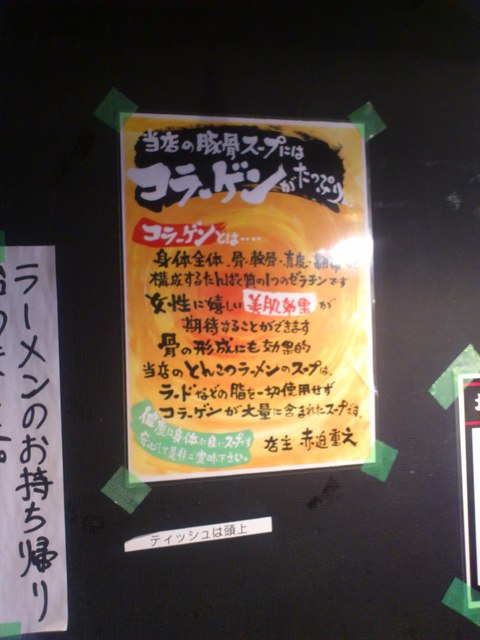 当店の豚骨スープには
コラーゲンがたっぷり
コラーゲンとは‥‥
身体全体、骨・軟骨・
構成するたんぱく質の1つのゼラチンです
女性に嬉しい美肌効果が
期待することができます
骨の形成にも効果的
当店のとんこつラーメンのスープは、
ラードなどの脂を一切使用せず
コラーゲンが大量に含まれたスープです。
健康に身体に良いスープを
安心して是非ご賞味下さい。
店主 赤迫重之
ティッシュは頭上
ラーメンのお持ち帰り